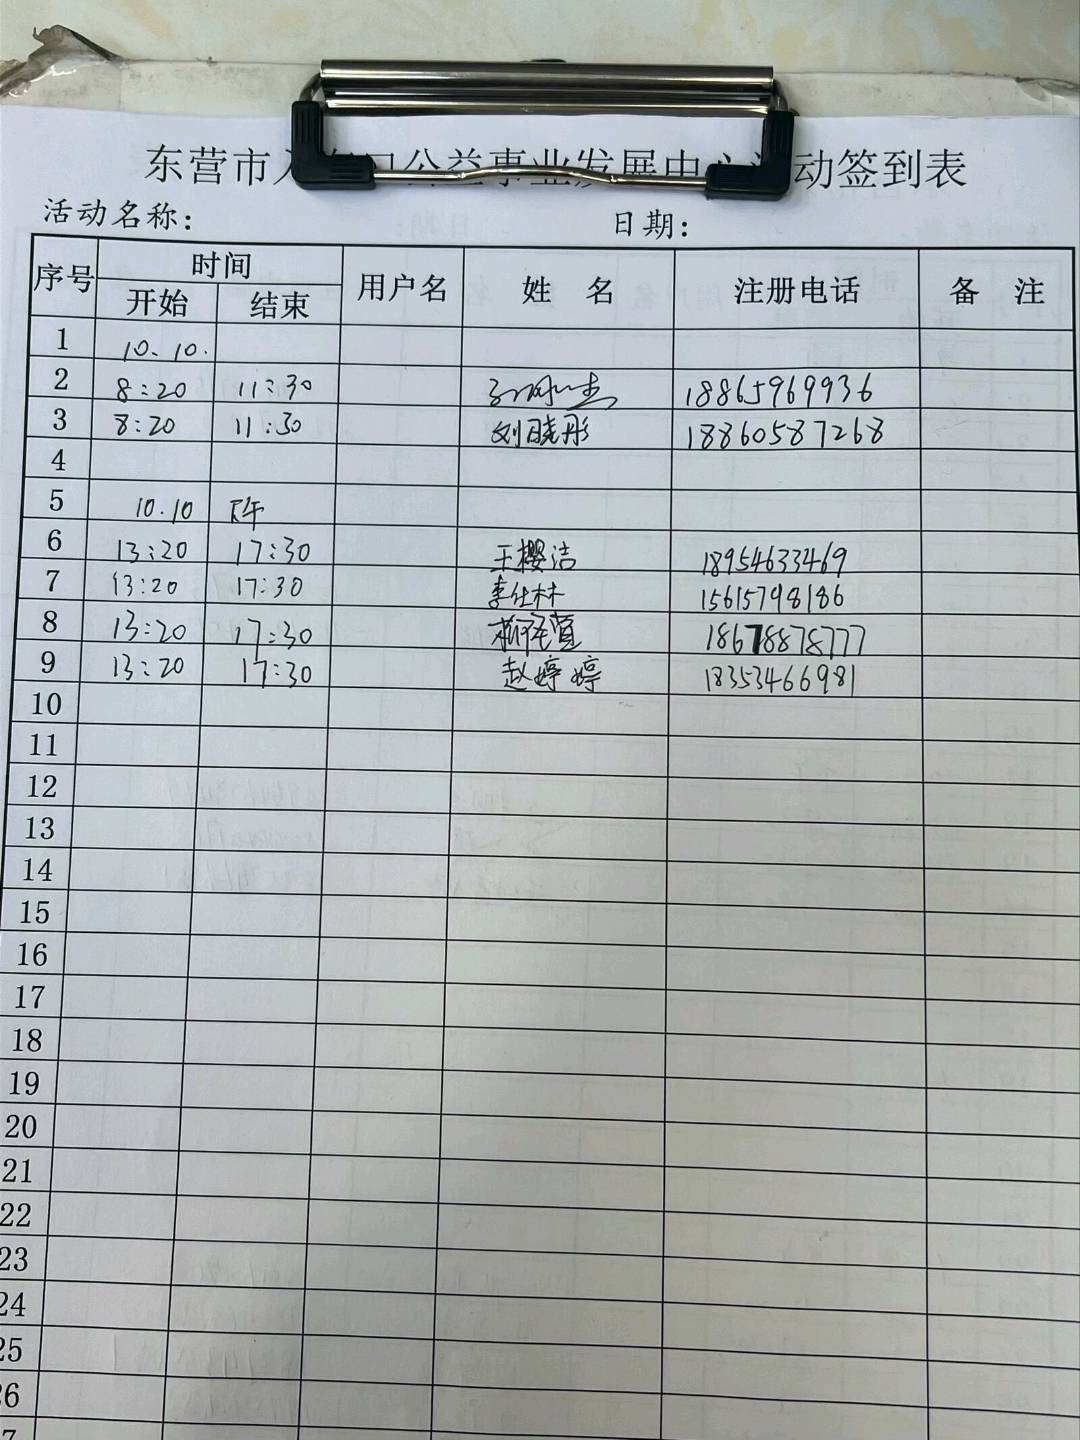 东营市 公益事业发展中心 动签到表
活动名称: 日期:
序号 时间 用户名 姓 名 注册电话 备 注
开始 结束
1 10.10.
2 8:20 11:30 18865969936
3 8:20 11:30 刘晓彤 18860587268
4
5 10.10 下午
6 13:20 17:30 王樱洁 18954633469
7 13:20 17:30 李仕林 15615798186
8 13:20 17:30 18678878777
9 13:20 17:30 赵婷婷 18353466981
10
11
12
13
14
15
16
17
18
19
20
21
22
23
24
25
26